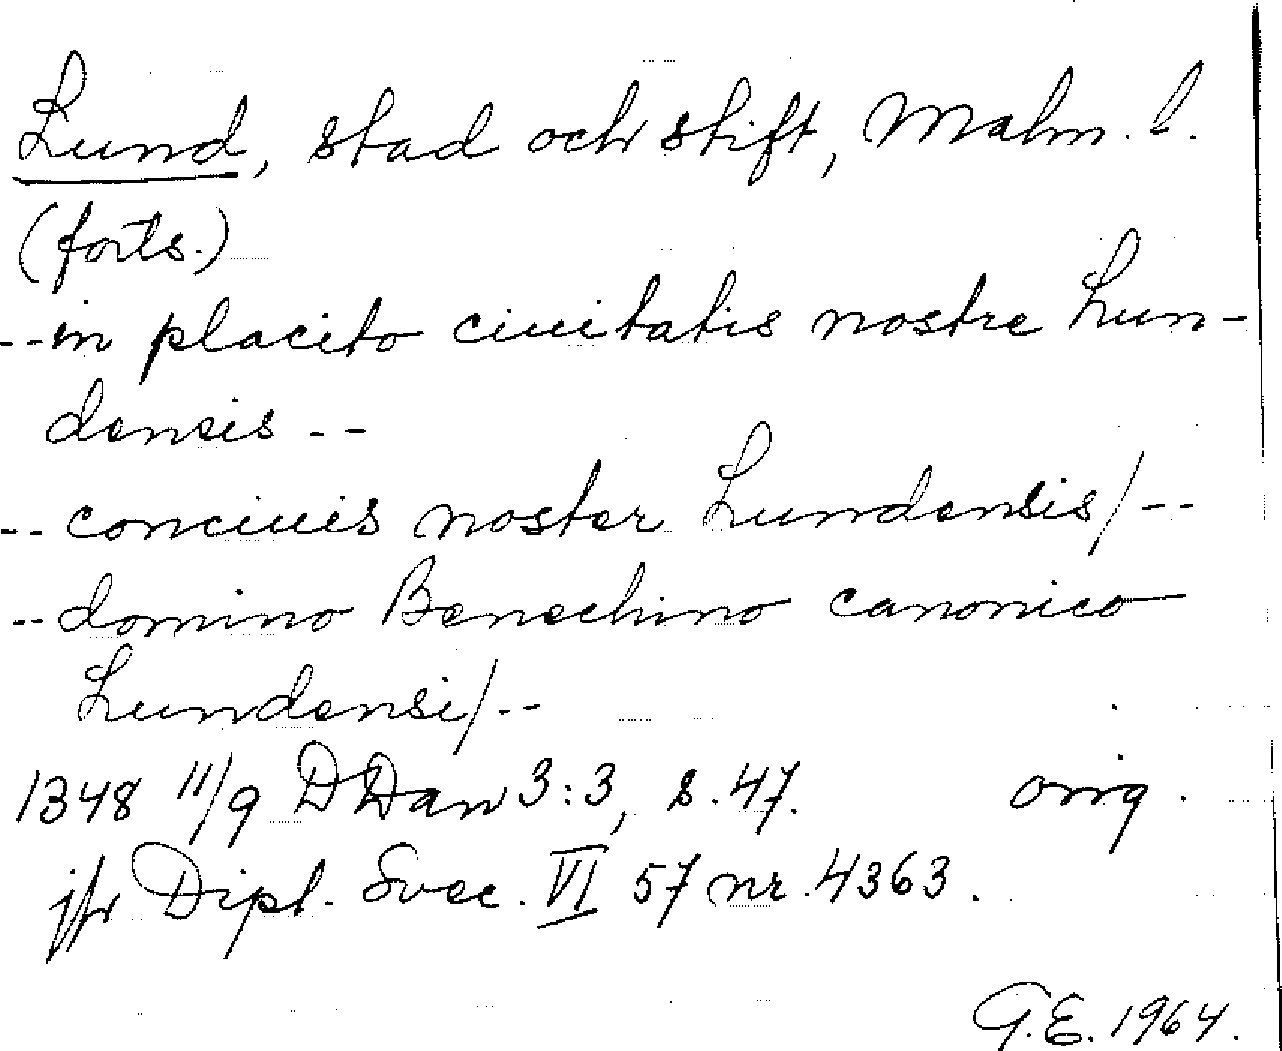 Lund, stad och stift, Malm. l.
(forts.)
-- in placito ciuitatis nostre Lun-
densis --
-- conciuis noster Lundensis/--
-- domino Benechino canonico
Lundensi/--
1348 11/9 DDan 3:3, s. 47. orig.
jfr Dipl. Svec. VI 57 nr. 4363.
G.E. 1964.